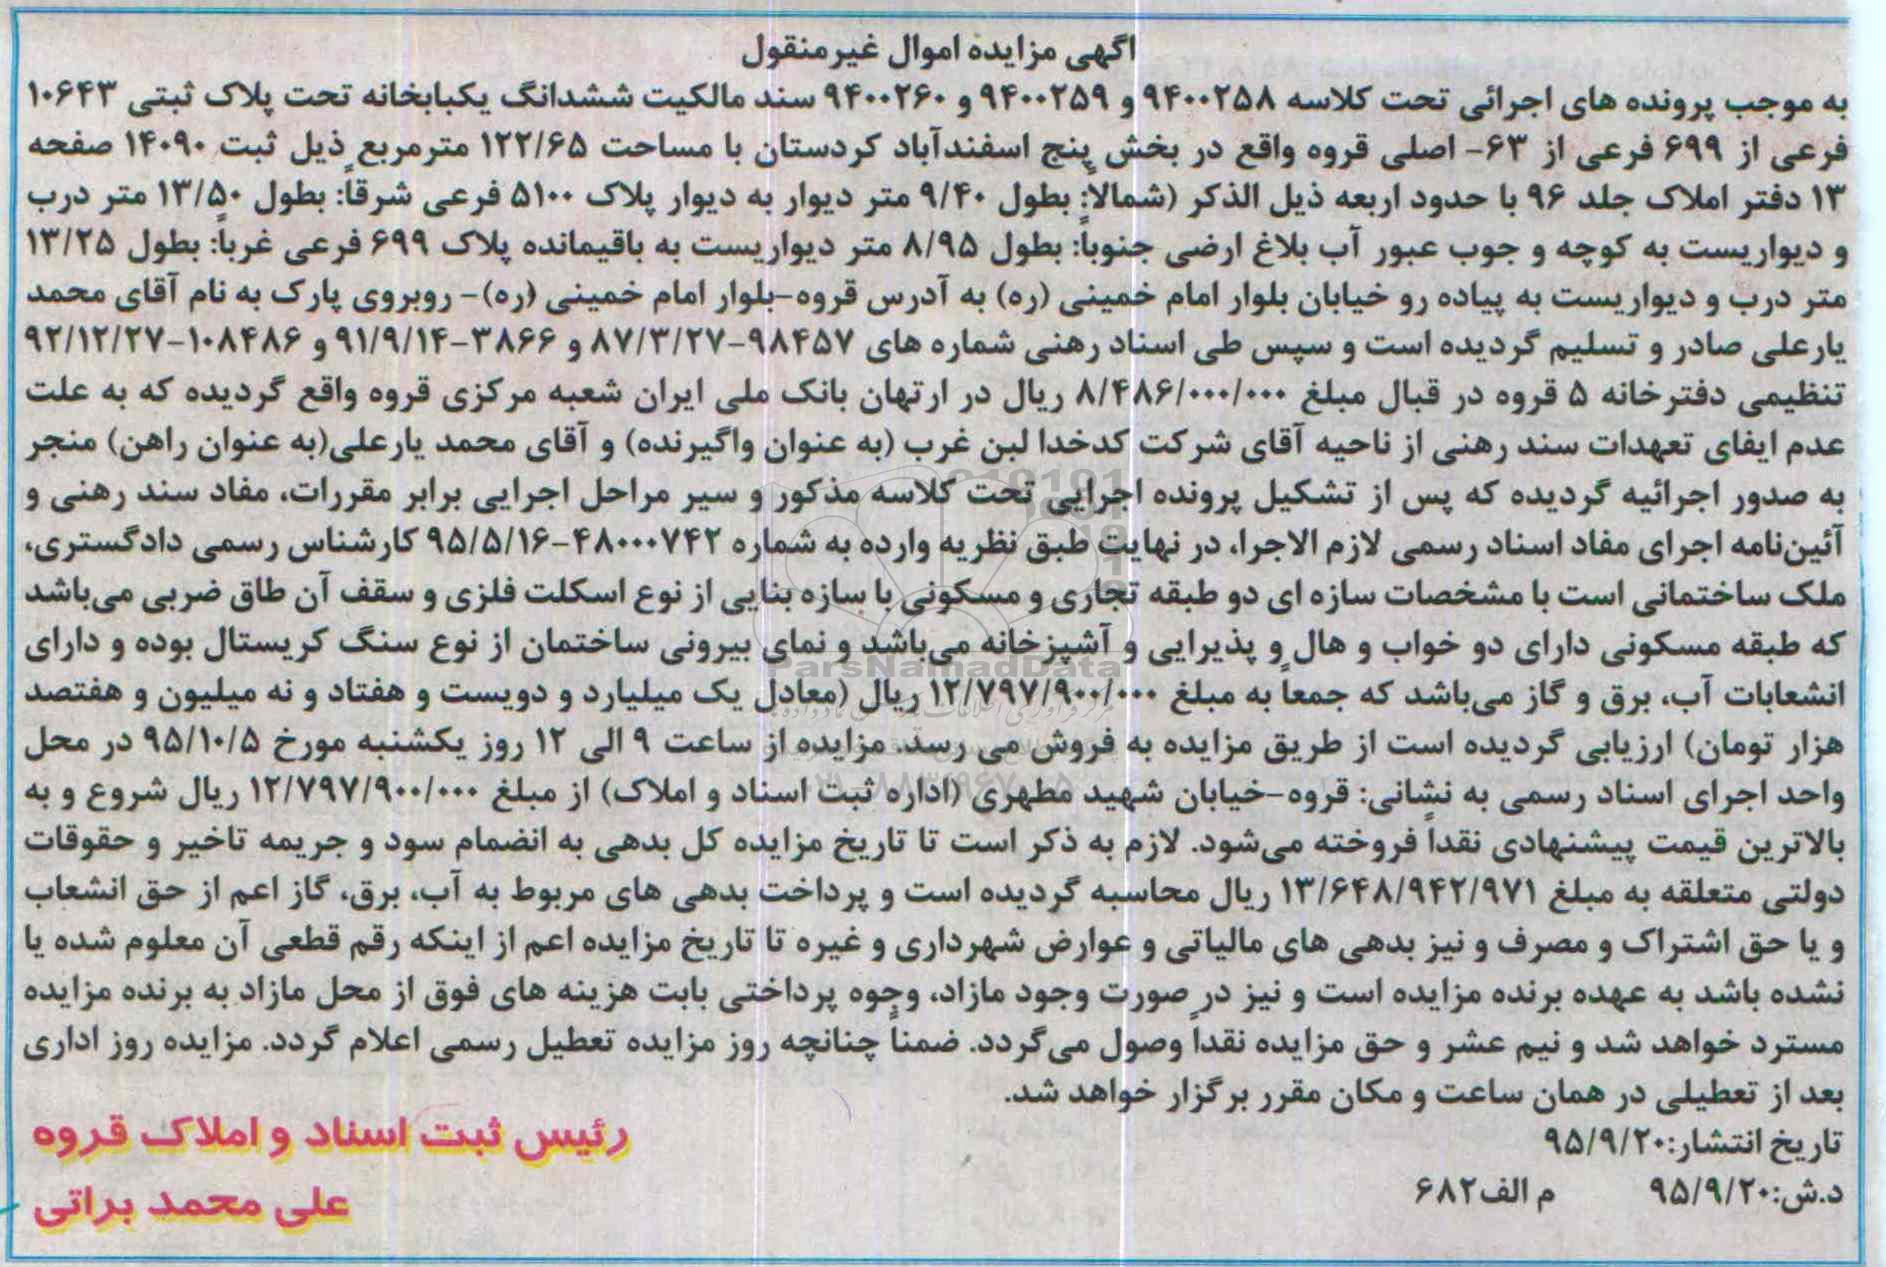 اگهی مزایده اموال غیرمنقول
به موجب پرونده های اجرائی تحت کلاسه ۹۴۰۰۲۵۸ و ۹۴۰۰۲۵۹ و ۹۴۰۰۲۶۰ سند مالکیت ششدانگ یکبابخانه تحت پلاک ثبتی ۱۰۶۴۳
فرعی از ۶۹۹ فرعی از ۶۳- اصلی قروه واقع در بخش پنج اسفندآباد کردستان با مساحت ۱۲۲/۶۵ مترمربع ذیل ثبت ۱۴۰۹۰ صفحه
۱۳ دفتر املاک جلد ۹۶ با حدود اربعه ذیل الذکر (شمالاً: بطول ۹/۴۰ متر دیوار به دیوار پلاک ۵۱۰۰ فرعی شرقاً: بطول ۱۳/۵۰ متر درب
و دیواریست به کوچه و جوب عبور آب بلاغ ارضی جنوباً: بطول ۸/۹۵ متر دیواریست به باقیمانده پلاک ۶۹۹ فرعی غرباً: بطول ۱۳/۲۵
متر درب و دیواریست به پیاده رو خیابان بلوار امام خمینی (ره) به آدرس قروه-بلوار امام خمینی (ره)- روبروی پارک به نام آقای محمد
یارعلی صادر و تسلیم گردیده است و سپس طی اسناد رهنی شماره های ۹۸۴۵۷-۸۷/۳/۲۷ و ۳۸۶۶-۹۱/۹/۱۴ و ۱۰۸۴۸۶-۹۲/۱۲/۲۷
تنظیمی دفترخانه ۵ قروه در قبال مبلغ ۸/۴۸۶/۰۰۰/۰۰۰ ریال در ارتهان بانک ملی ایران شعبه مرکزی قروه واقع گردیده که به علت
عدم ایفای تعهدات سند رهنی از ناحیه آقای شرکت کدخدا لبن غرب (به عنوان واگیرنده) و آقای محمد یارعلی(به عنوان راهن) منجر
به صدور اجرائیه گردیده که پس از تشکیل پرونده اجرایی تحت کلاسه مذکور و سیر مراحل اجرایی برابر مقررات، مفاد سند رهنی و
آئین‌نامه اجرای مفاد اسناد رسمی لازم الاجرا، در نهایت طبق نظریه وارده به شماره ۴۸۰۰۰۷۴۲-۹۵/۵/۱۶ کارشناس رسمی دادگستری،
ملک ساختمانی است با مشخصات سازه ای دو طبقه تجاری و مسکونی با سازه بنایی از نوع اسکلت فلزی و سقف آن طاق ضربی می‌باشد
که طبقه مسکونی دارای دو خواب و هال و پذیرایی و آشپزخانه می‌باشد و نمای بیرونی ساختمان از نوع سنگ کریستال بوده و دارای
انشعابات آب، برق و گاز می‌باشد که جمعاً به مبلغ ۱۲/۷۹۷/۹۰۰/۰۰۰ ریال (معادل یک میلیارد و دویست و هفتاد و نه میلیون و هفتصد
هزار تومان) ارزیابی گردیده است از طریق مزایده به فروش می رسد. مزایده از ساعت ۹ الی ۱۲ روز یکشنبه مورخ ۹۵/۱۰/۵ در محل
واحد اجرای اسناد رسمی به نشانی: قروه-خیابان شهید مطهری (اداره ثبت اسناد و املاک) از مبلغ ۱۲/۷۹۷/۹۰۰/۰۰۰ ریال شروع و به
بالاترین قیمت پیشنهادی نقداً فروخته می‌شود. لازم به ذکر است تا تاریخ مزایده کل بدهی به انضمام سود و جریمه تاخیر و حقوقات
دولتی متعلقه به مبلغ ۱۳/۶۴۸/۹۴۲/۹۷۱ ریال محاسبه گردیده است و پرداخت بدهی های مربوط به آب، برق، گاز اعم از حق انشعاب
و یا حق اشتراک و مصرف و نیز بدهی های مالیاتی و عوارض شهرداری و غیره تا تاریخ مزایده اعم از اینکه رقم قطعی آن معلوم شده یا
نشده باشد به عهده برنده مزایده است و نیز در صورت وجود مازاد، وجوه پرداختی بابت هزینه های فوق از محل مازاد به برنده مزایده
مسترد خواهد شد و نیم عشر و حق مزایده نقداً وصول می‌گردد. ضمناً چنانچه روز مزایده تعطیل رسمی اعلام گردد. مزایده روز اداری
بعد از تعطیلی در همان ساعت و مکان مقرر برگزار خواهد شد.
تاریخ انتشار:۹۵/۹/۲۰
د.ش:۹۵/۹/۲۰ م الف۶۸۲
رئیس ثبت اسناد و املاک قروه
علی محمد براتی
ParsNamadData